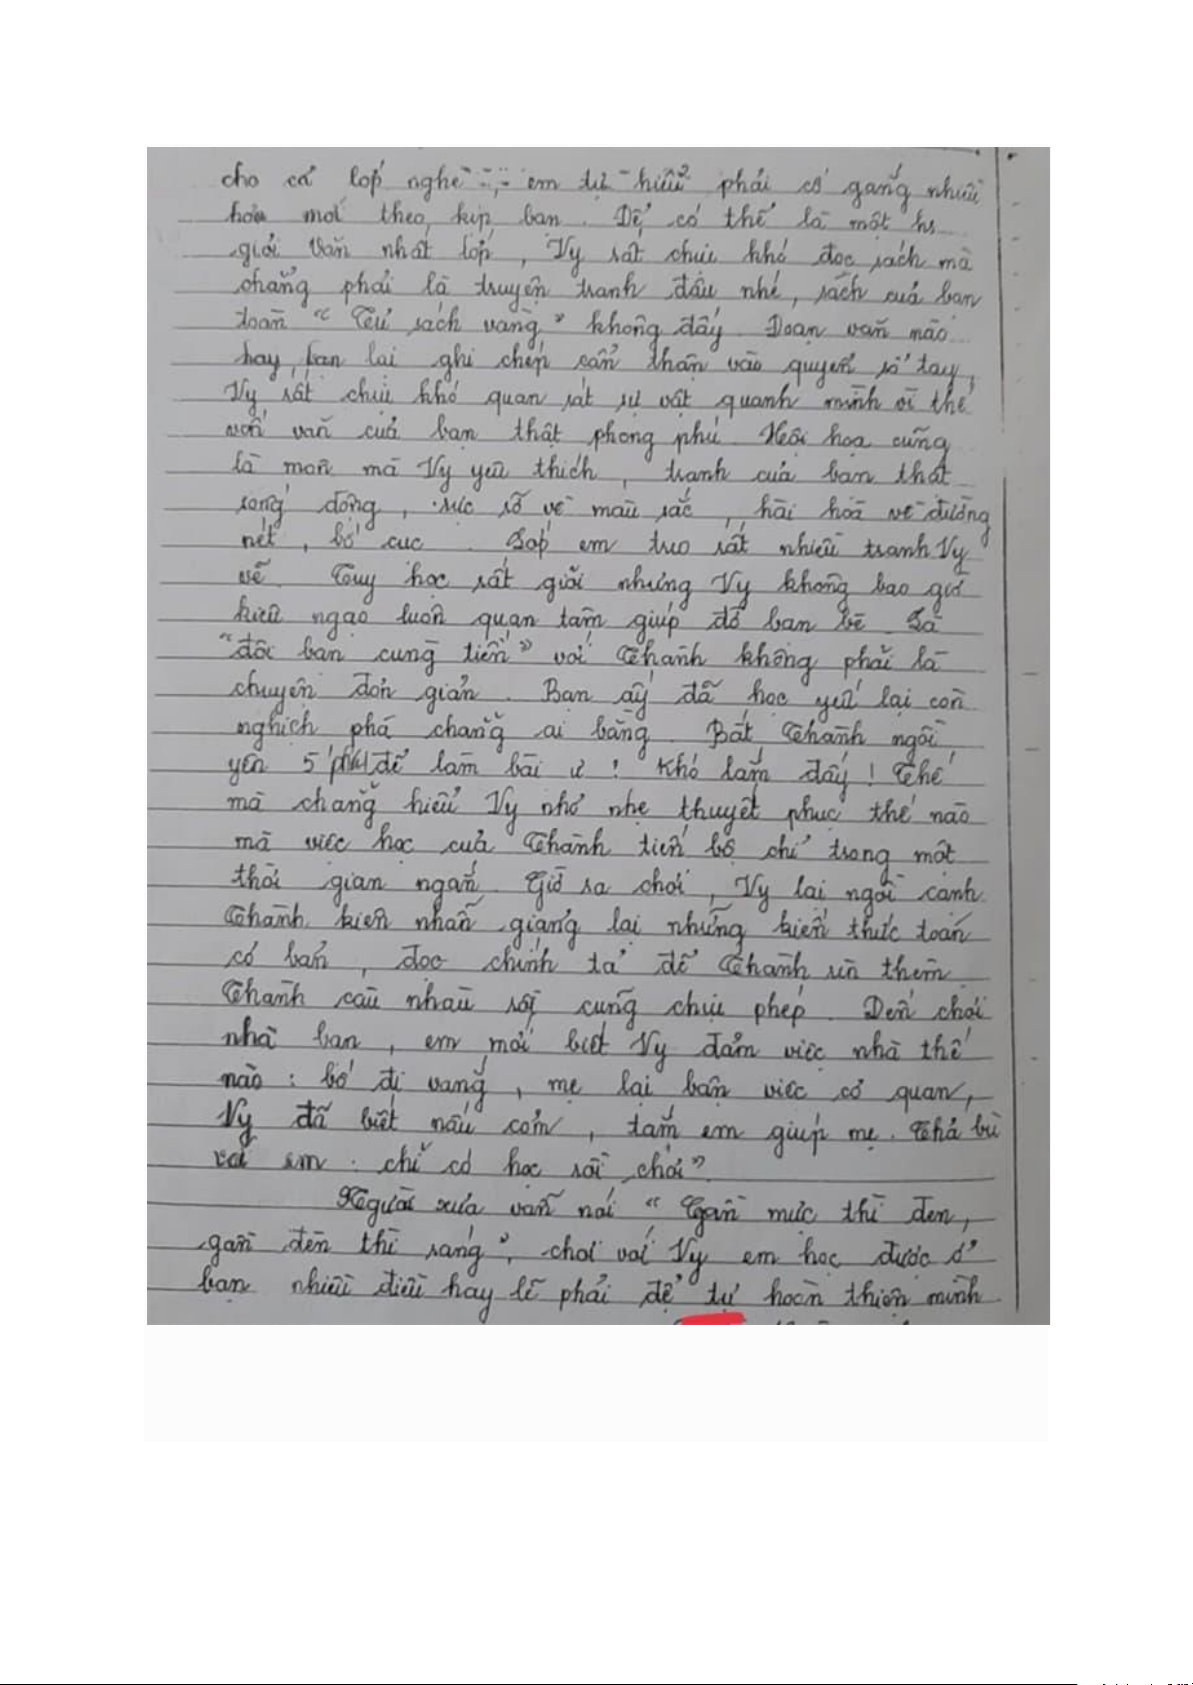 cho cả lớp nghe -;- em tự hiểu phải cố gắng nhiều
hơn mới theo kịp bạn. Để có thể là một hs
giỏi văn nhất lớp, Vy rất chịu khó đọc sách mà
chẳng phải là truyện tranh đâu nhé, sách của bạn
toàn "Tủ sách vàng" không đấy. Đoạn văn nào
hay, bạn lại ghi chép cẩn thận vào quyển sổ tay,
Vy rất chịu khó quan sát sự vật quanh mình vì thế
vốn văn của bạn thật phong phú. Hội họa cũng
là môn mà Vy yêu thích, tranh của bạn thật
sống động, rực rỡ về màu sắc, hài hoà về đường
nét, bố cục. Lớp em treo rất nhiều tranh Vy
vẽ. Tuy học rất giỏi nhưng Vy không bao giờ
kiêu ngạo luôn quan tâm giúp đỡ bạn bè. Là
"đôi bạn cùng tiến" với Thành không phải là
chuyện đơn giản. Bạn ấy đã học yếu lại còn
nghịch phá chẳng ai bằng. Bắt Thành ngồi
yên 5 phút để làm bài ư! Khó lắm đấy! Thế
mà chẳng hiểu Vy nhỏ nhẹ thuyết phục thế nào
mà việc học của Thành tiến bộ chỉ trong một
thời gian ngắn. Giờ ra chơi, Vy lại ngồi cạnh
Thành kiên nhẫn giảng lại những kiến thức toán
cơ bản, đọc chính tả để Thành rèn thêm
Thành càu nhàu rồi cũng chịu phép. Đến chơi
nhà bạn, em mới biết Vy đảm việc nhà thế
nào: bố đi vắng, mẹ lại bận việc cơ quan,
Vy đã biết nấu cơm, tắm em giúp mẹ. Thả bù
với em: chỉ có học rồi chơi"
Người xưa vẫn nói "Gần mực thì đen,
gần đèn thì sáng", chơi với Vy em học được ở
bạn nhiều điều hay lẽ phải để tự hoàn thiện mình